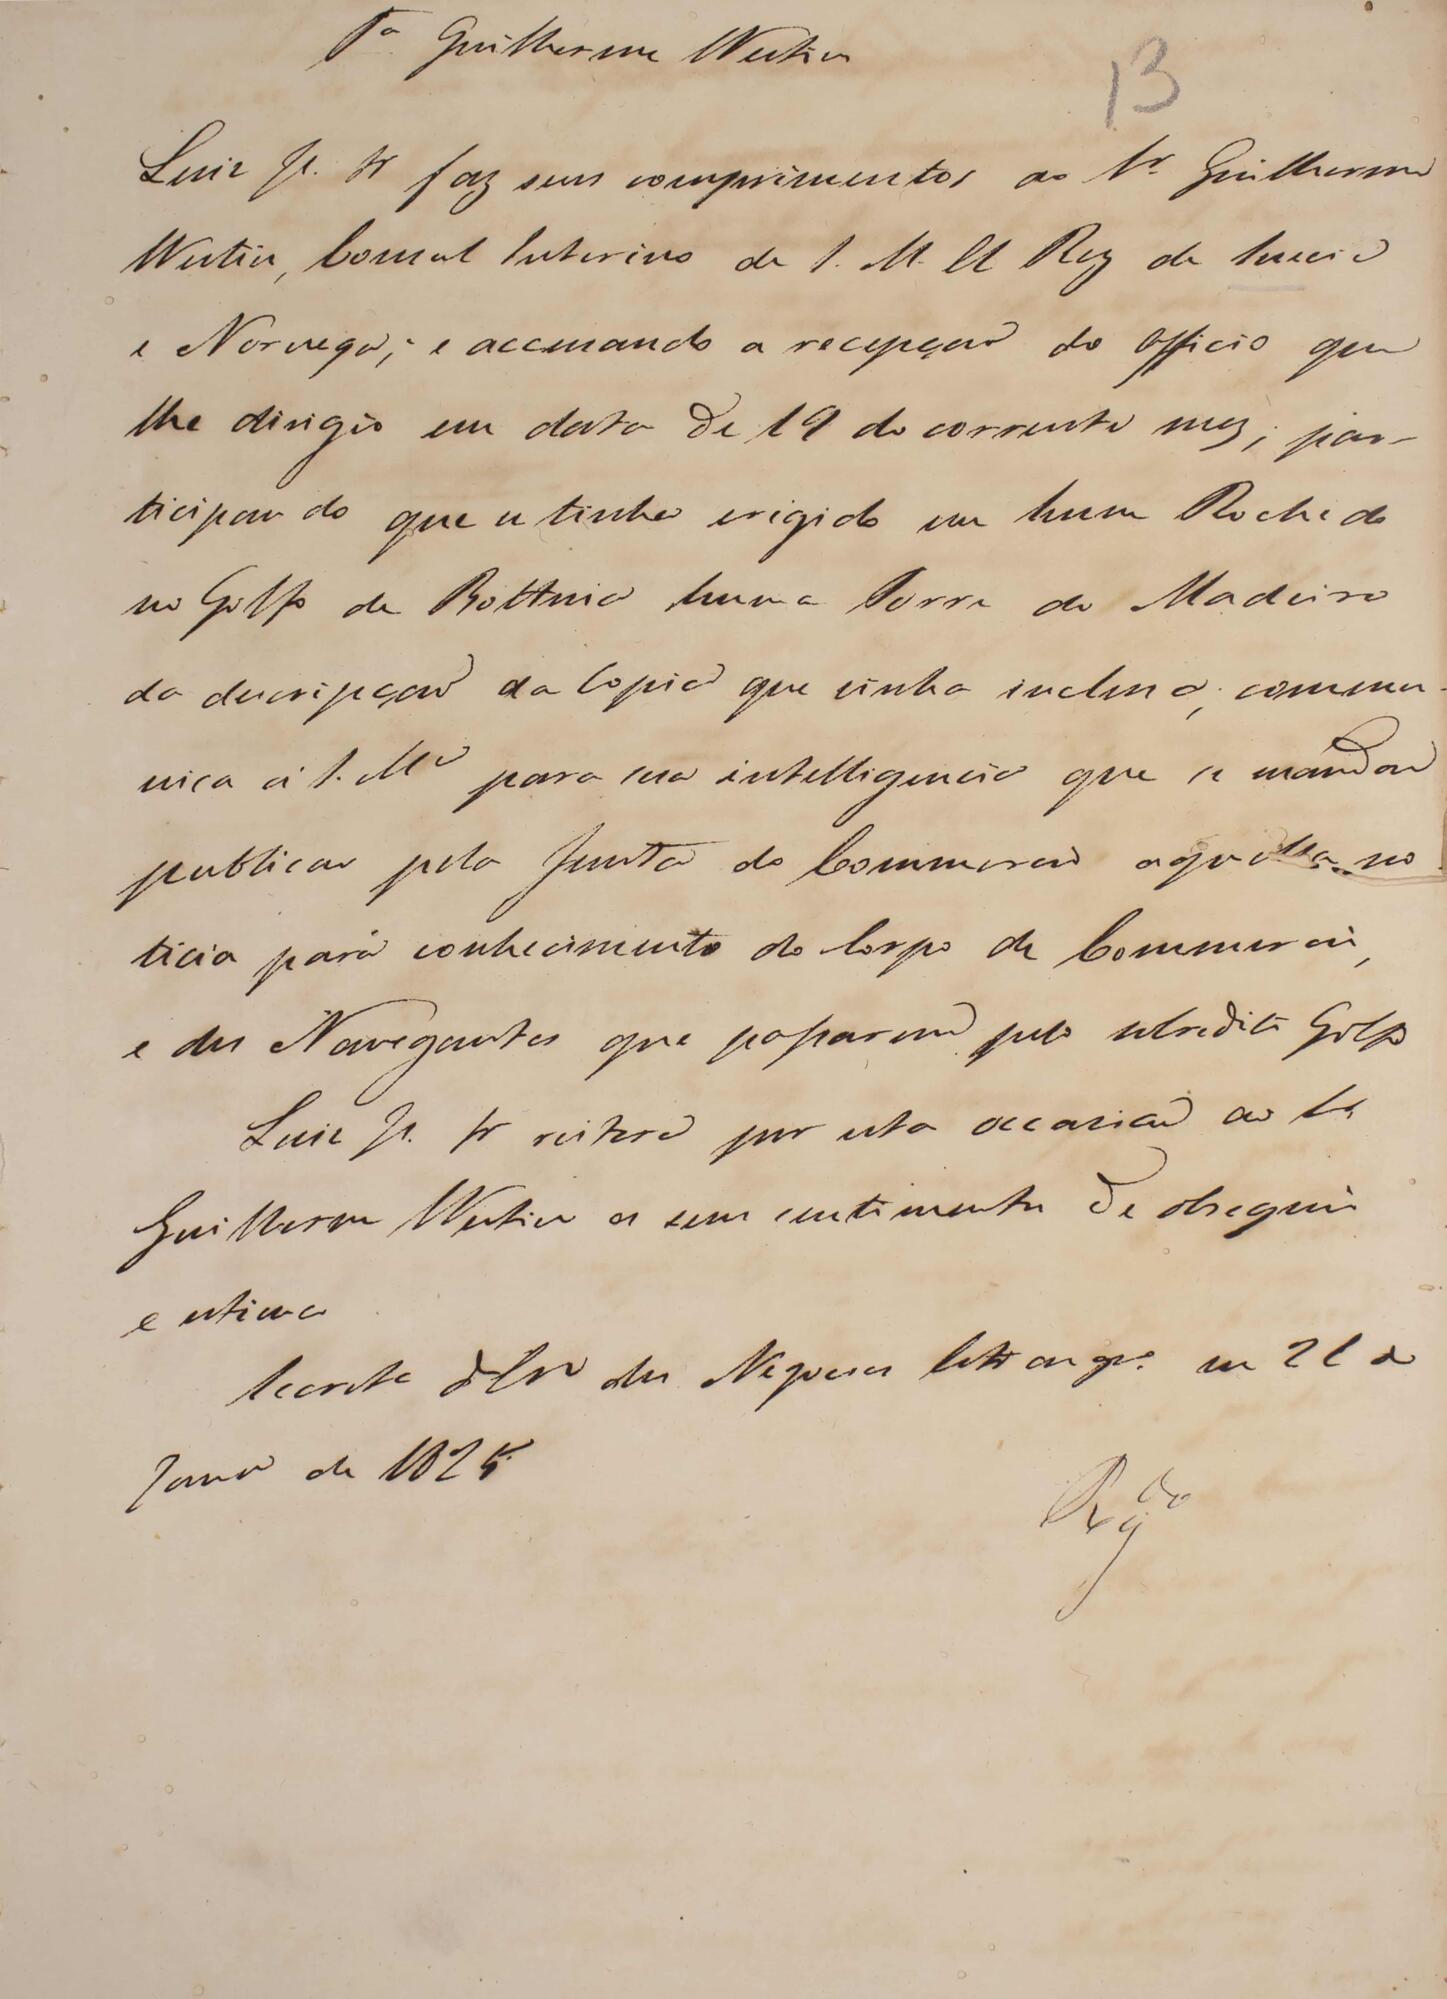 Pa Guilherme Westin
13
Luiz Je. &r faz seus comprimentos ao Sr. Guilherme
Westin, Consul Interino de S. M. El Rey de Suecia
e Noruega; e accusando a recepçaõ do officio que
lhe dirigio em data de 19 do corrente mez, par-
ticipando que se tinha erigido em hum Rochedo
no Golfo de Bottnia huma Torre de Madeira
da descripçaõ da Copia que vinha inclusa, commu-
nica á S. Mce para sua intelligencia que se mandou
publicar pela Junta do Commercio aquella no
ticia para conhecimento do Corpo de Commercio,
e dos Navegantes que passarem pelo sobredito Golfo
Luiz Je. &r reitera por esta occasiaõ ao Sr
Guilherme Westin os seus sentimentos de obsequio
e estima
Secreta d'Esto dos Negocios Estrangos. em 21 de
Janro de 1825